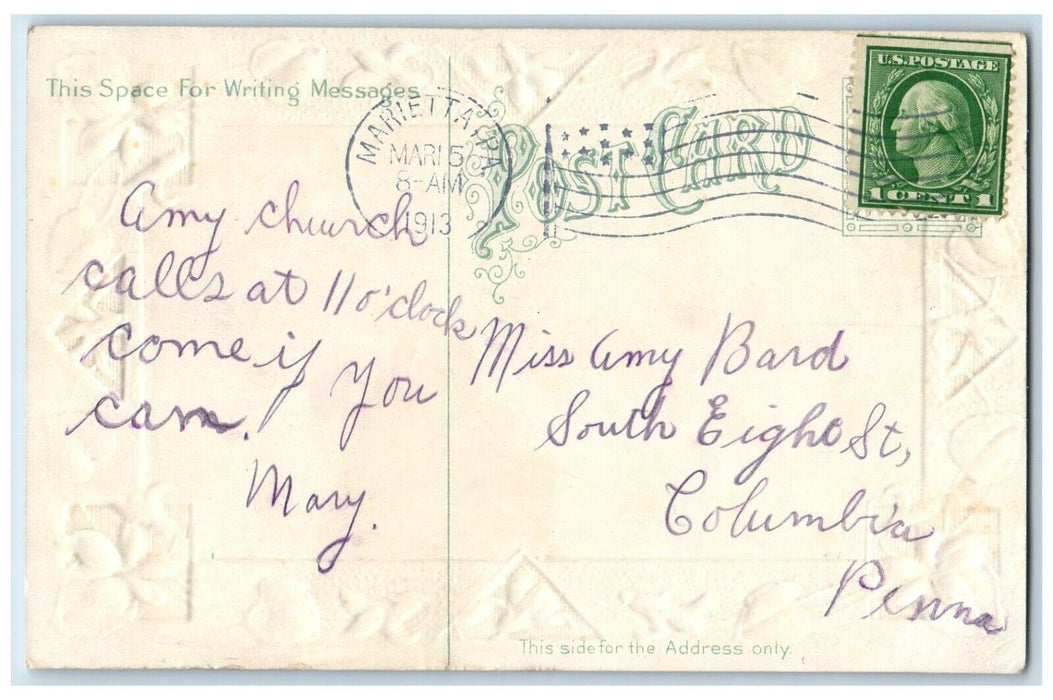 This Space For Writing Messages
MARIETTA, PA.
MAR 15
8-AM
1913
POST CARD
U.S. POSTAGE
1 CENT 1
Amy church
calls at 11 o'clock
come if you
can.
Mary.
Miss Amy Bard
South Eight St,
Columbia
Penna
This side for the Address only.